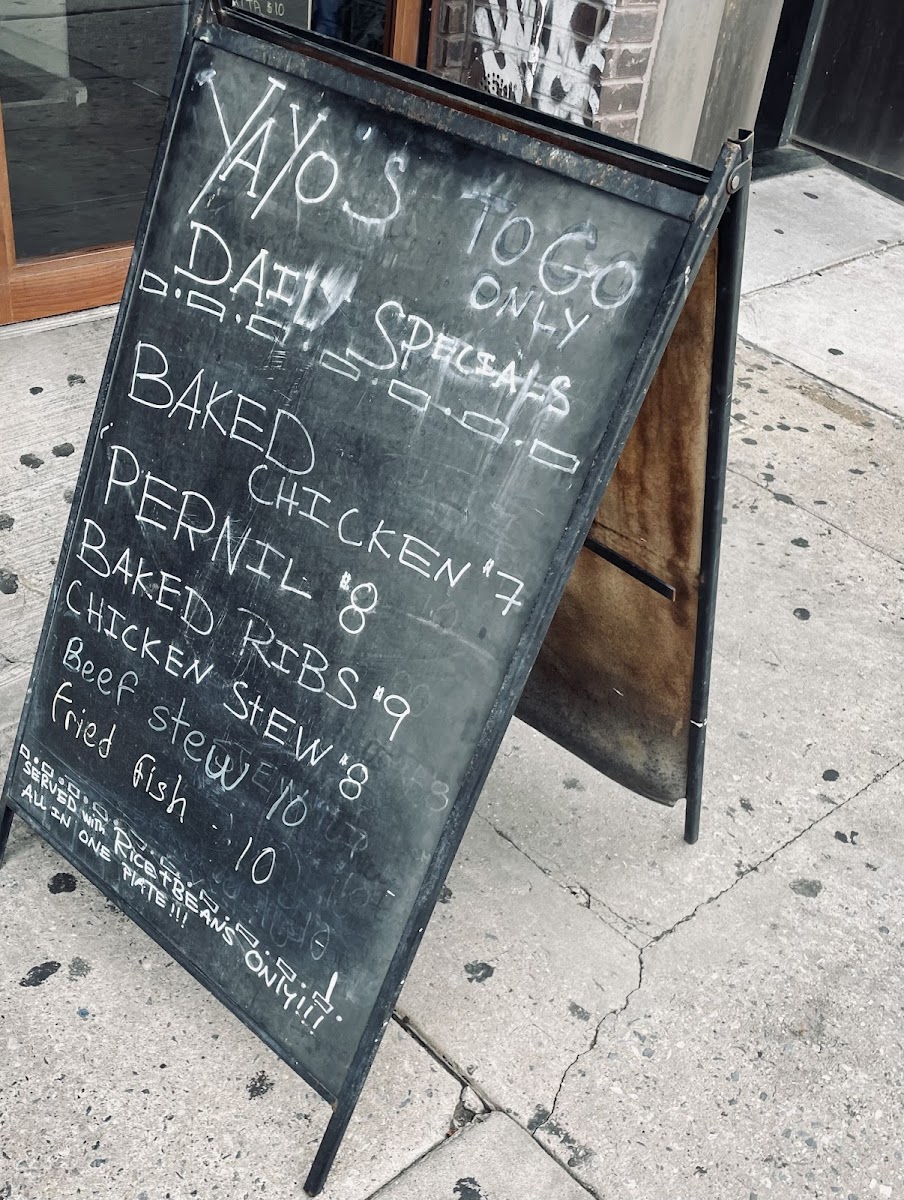 YAYO'S
TO GO
ONLY
DAILY SPECIALS
BAKED
CHICKEN $7
PERNIL $8
BAKED RIBS $9
CHICKEN STEW $8
Beef stew 10
fried fish . 10
SERVED WITH RICE + BEANS ONLY!!!
ALL IN ONE PLATE!!!